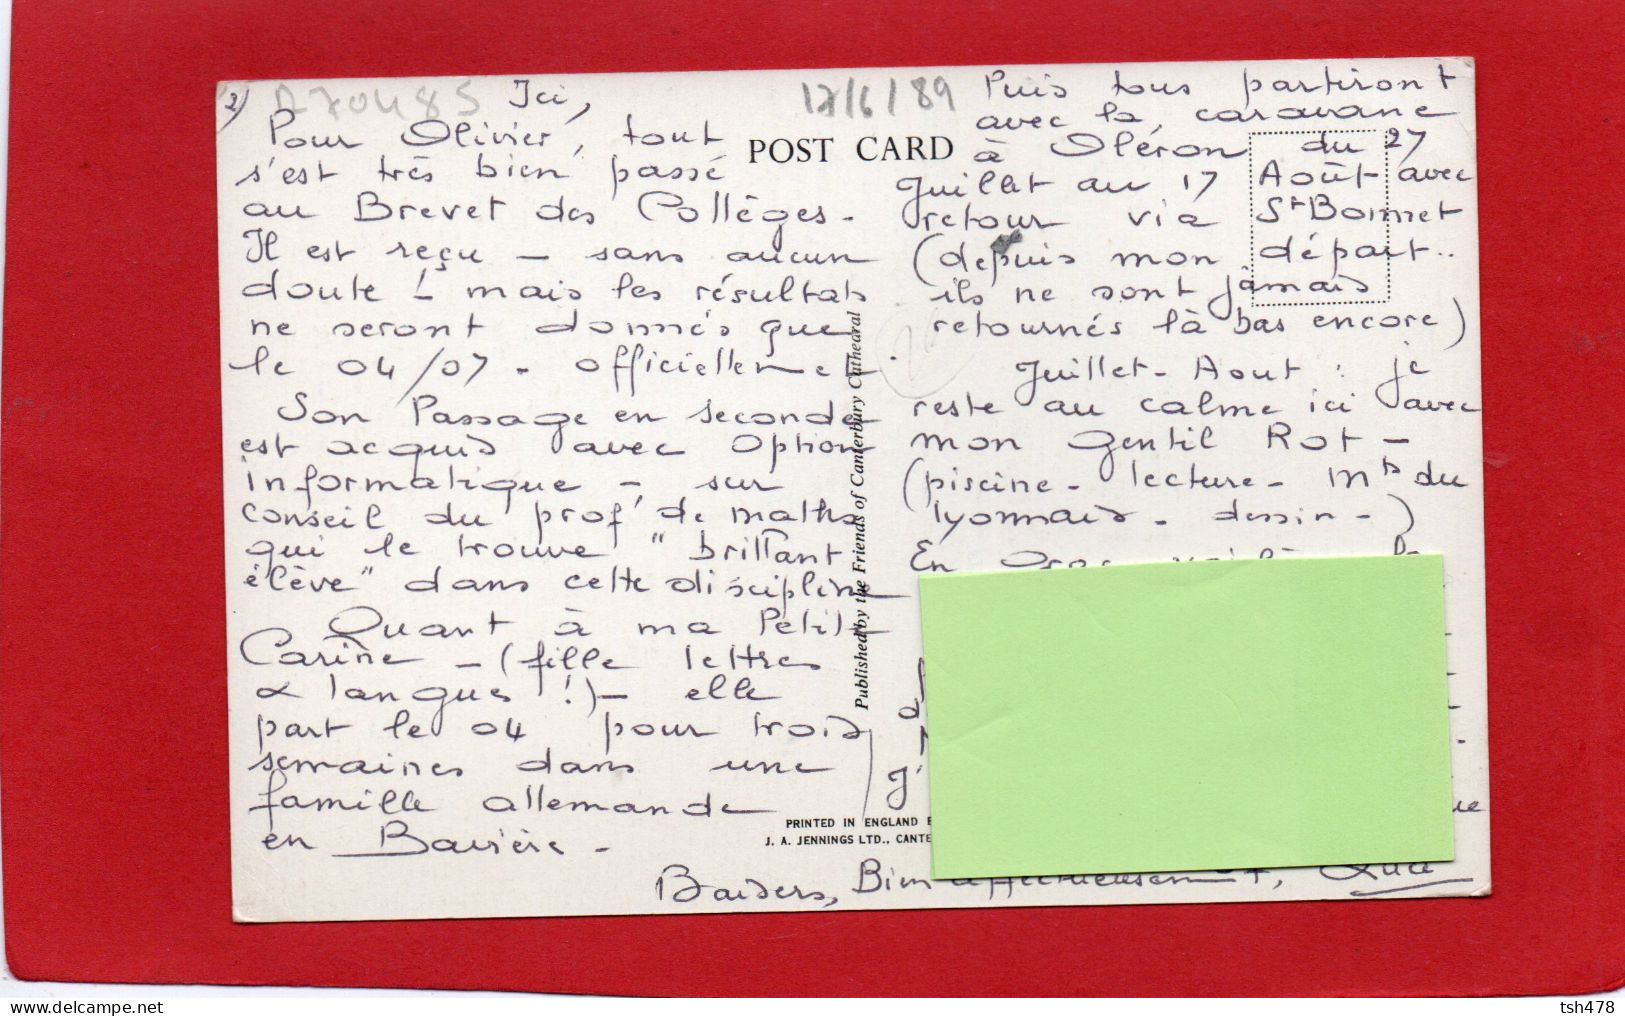 2)
A70485
Ici,
17/6/89
Pour Olivier, tout
s'est très bien passé
au Brevet des Collèges.
Il est reçu - sans aucun
doute ! - mais les résultats
ne seront donnés que
le 04/07 - officiellement
Son Passage en seconde
est acquis avec option
informatique - sur
conseil du prof' de maths
qui le trouve "brillant
élève" dans cette discipline
Quant à ma Petite
Carine - (fille lettres
& langues !) - elle
part le 04 pour trois
semaines dans une
famille allemande
en Bavière -
POST CARD
Published by the Friends of Canterbury Cathedral
PRINTED IN ENGLAND
J. A. JENNINGS LTD., CANTE
Puis tous partiront
avec la caravane
à Oléron du 27
Juillet au 17 Août avec
retour via St Bonnet
(depuis mon départ..
ils ne sont jamais
retournés là bas encore)
Juillet - Aout : je
reste au calme ici avec
mon gentil Rot -
(piscine - lecture - mts du
lyonnais - dessin -)
En
J'
Baisers, Bien affectueusement,
tsh478